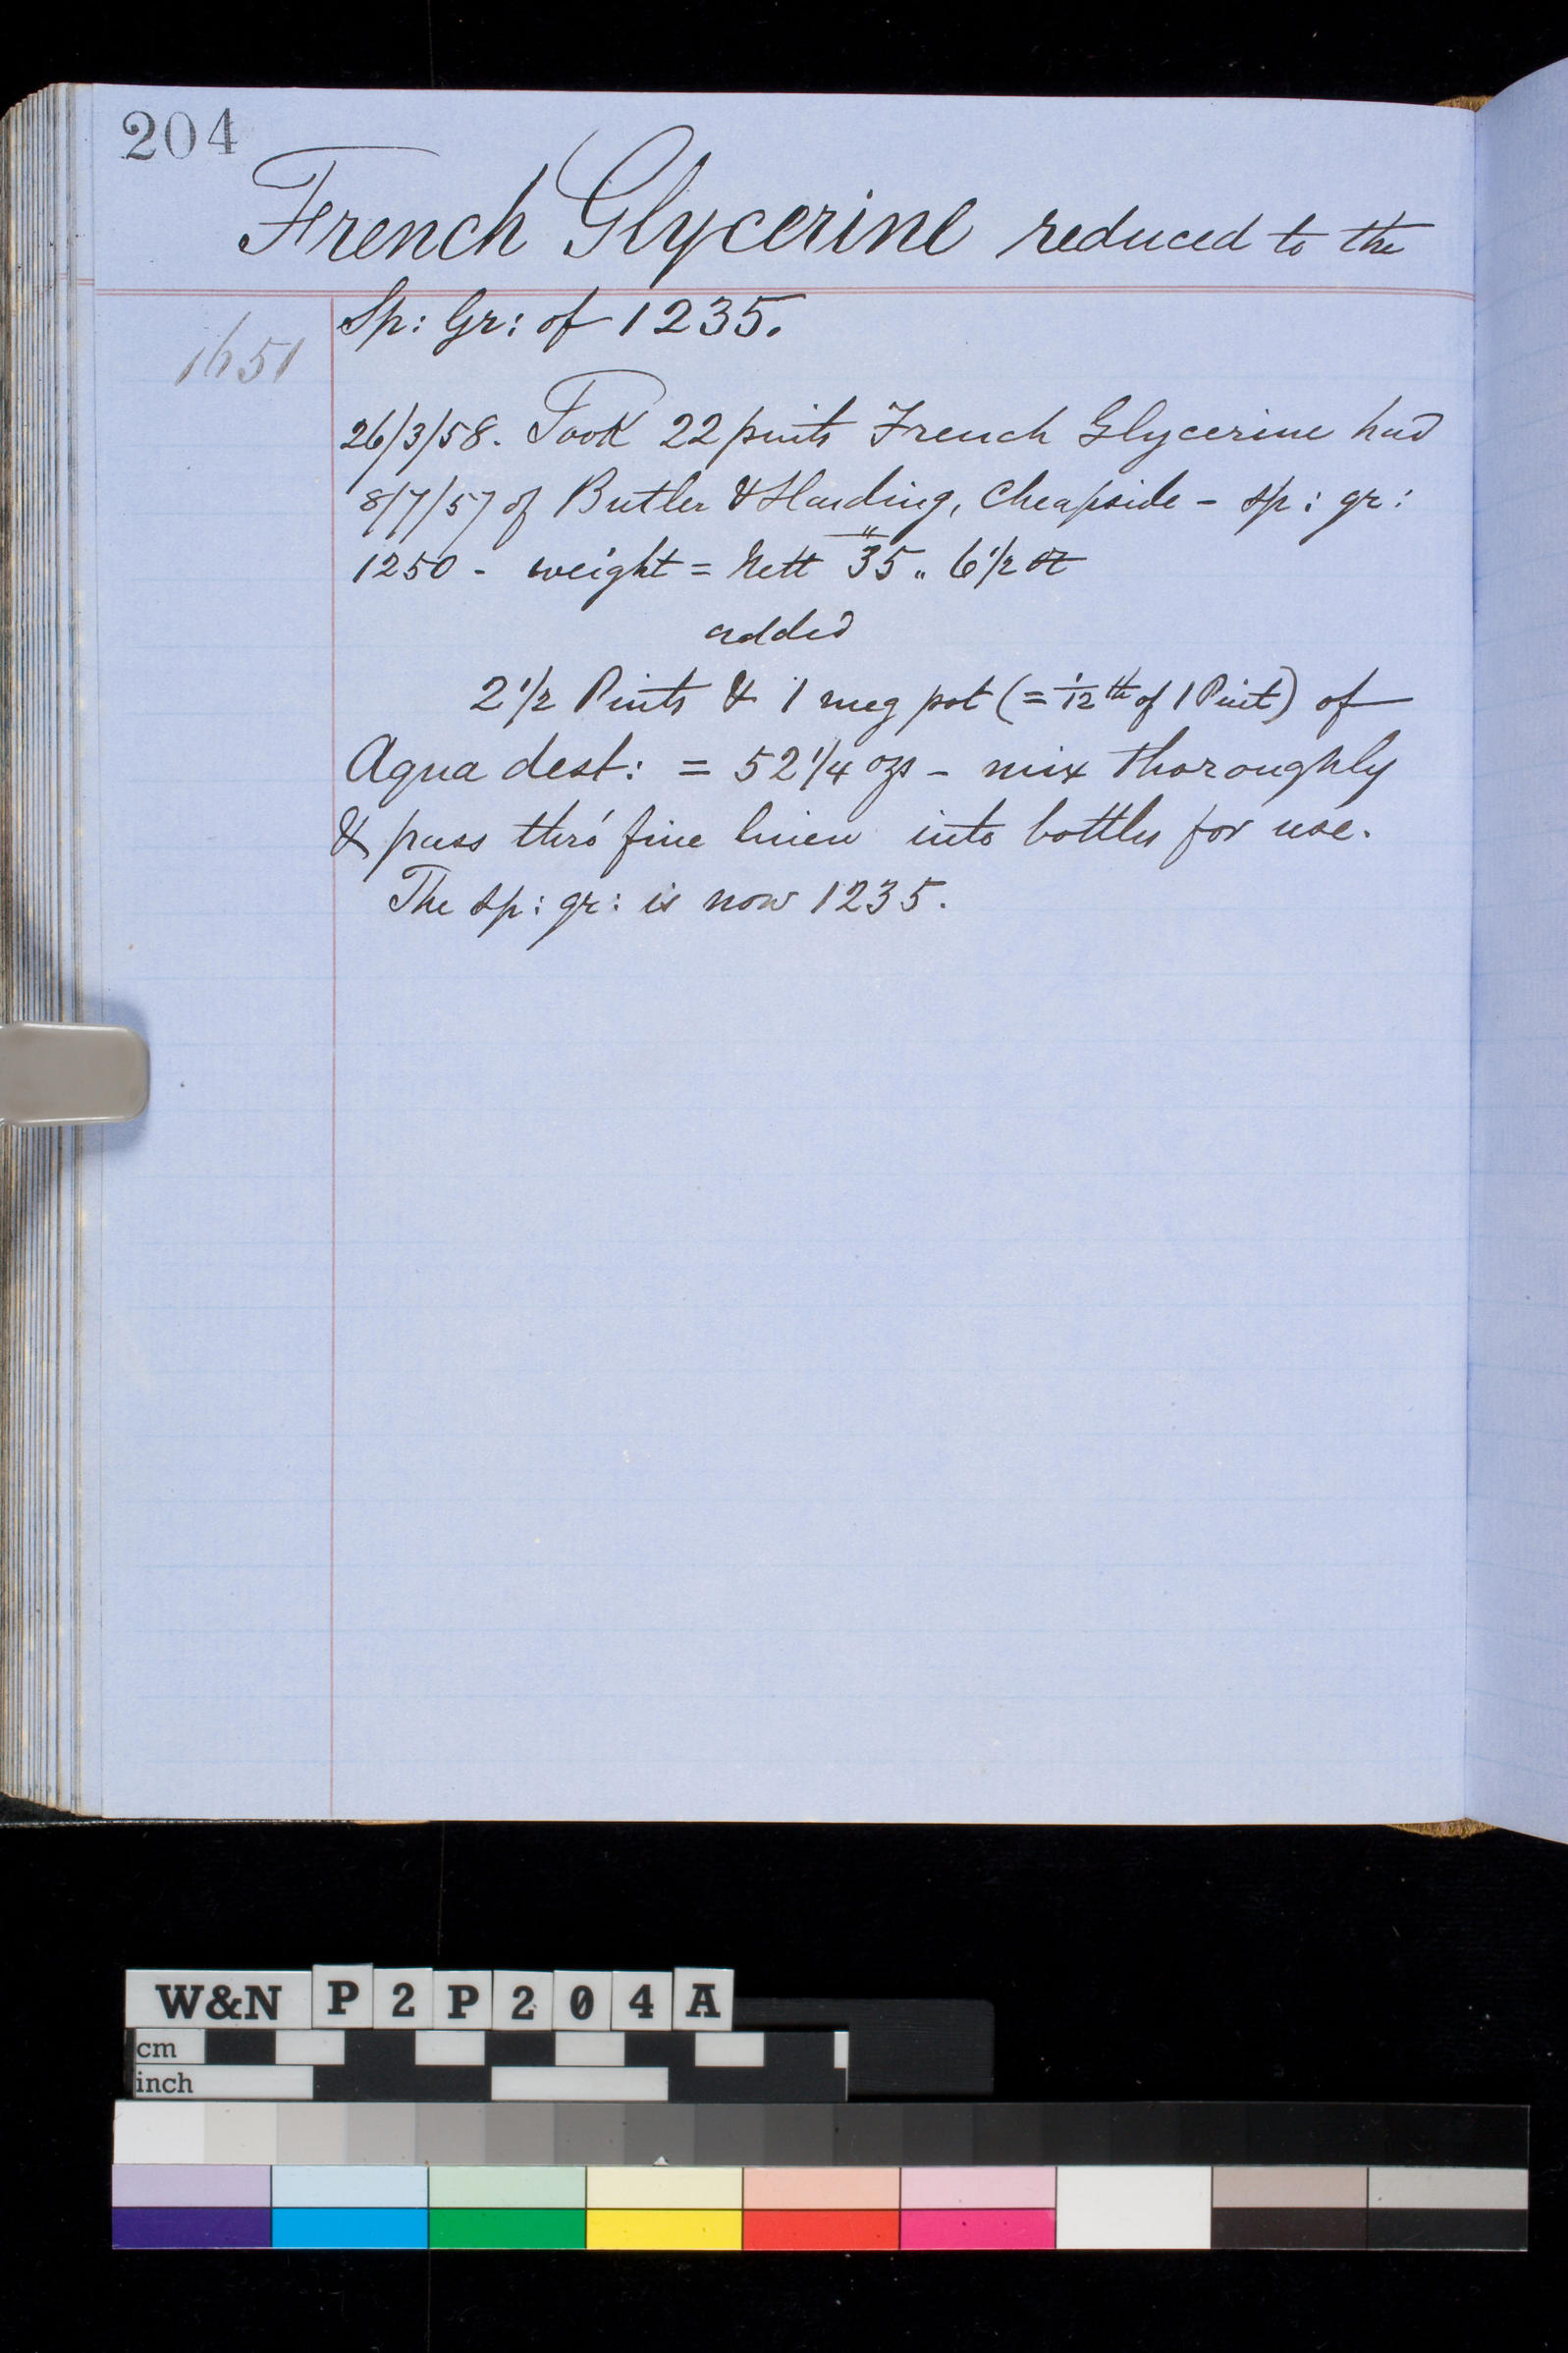 204
French Glycerine reduced to the
Sp: Gr: of 1235.
1651
26/3/58. Took 22 pints French Glycerine had
8/7/57 of Butler & Harding, Cheapside - sp: gr:
1250 - weight = Nett 35 " 6 1/2 oz
added
2 1/2 Pints & 1 meg pot (= 1/12th of 1 Pint) of
Aqua dest: = 52 1/4 ozs - mix thoroughly
& pass thro' fine linen into bottles for use.
The sp: gr: is now 1235.
W&N P2P204A
cm
inch